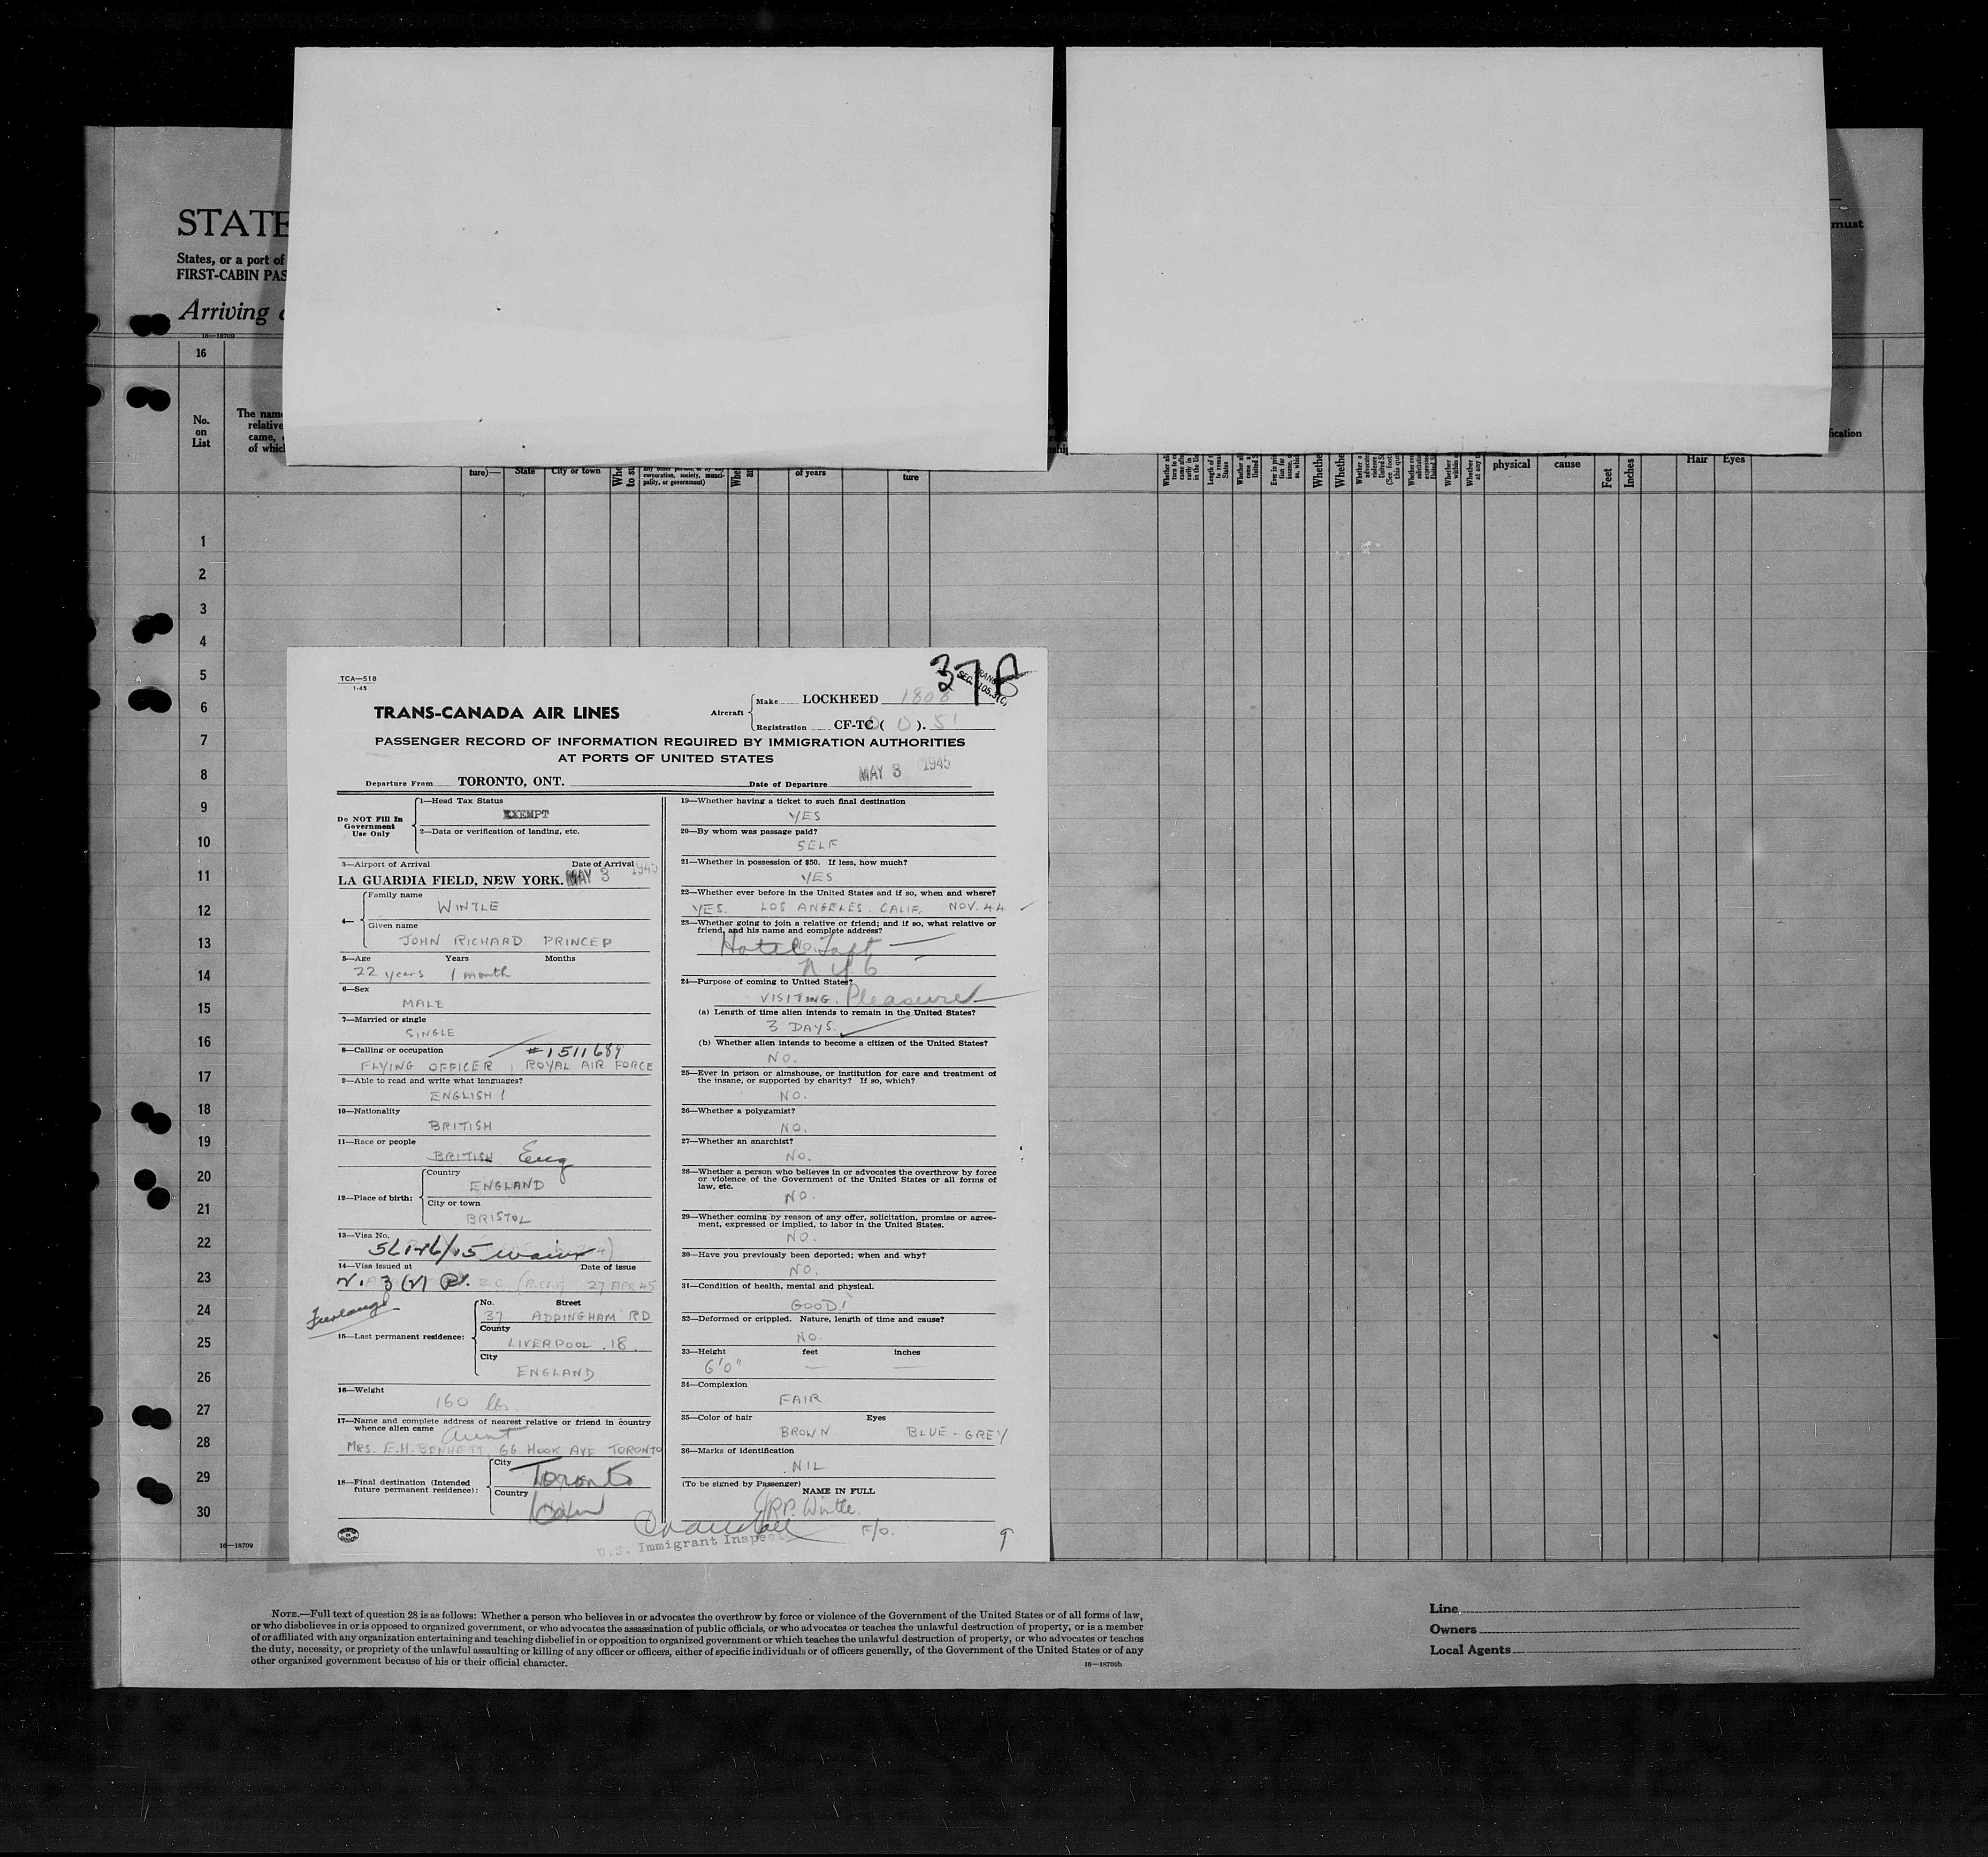 STATE
States, or a port of
FIRST-CABIN PAS
Arriving
must
16—18709
16
No.
on
List
The nam
relative
came,
of which
fication
ture)—
State
City or town
any other person, or by any
corporation, society, munici-
pality, or government)
of years
ture
physical
cause
Feet
Inches
Hair
Eyes
1
2
3
4
5
6
7
8
9
10
11
12
13
14
15
16
17
18
19
20
21
22
23
24
25
26
27
28
29
30
16—18709
TCA—518
1-45
37A
TRANS-CANADA AIR LINES
Aircraft
Make LOCKHEED 1808
Registration CF-TC ( ).
PASSENGER RECORD OF INFORMATION REQUIRED BY IMMIGRATION AUTHORITIES
AT PORTS OF UNITED STATES
Departure From TORONTO, ONT. Date of Departure MAY 3 1945
Do NOT Fill In
Government
Use Only
1—Head Tax Status
EXEMPT
2—Data or verification of landing, etc.
3—Airport of Arrival Date of Arrival
LA GUARDIA FIELD, NEW YORK. MAY 3 1945
4—
Family name
WINTLE
Given name
JOHN RICHARD PRINCEP
5—Age Years Months
22 years 1 month
6—Sex
MALE
7—Married or single
SINGLE
8—Calling or occupation #1511689
FLYING OFFICER, ROYAL AIR FORCE
9—Able to read and write what languages?
ENGLISH
10—Nationality
BRITISH
11—Race or people
BRITISH Eng
12—Place of birth:
Country
ENGLAND
City or town
BRISTOL
13—Visa No.
14—Visa issued at Date of issue
27 APR 45
15—Last permanent residence:
No. Street
37 ADDINGHAM RD
County
LIVERPOOL. 18.
City
ENGLAND
16—Weight
160 lbs.
17—Name and complete address of nearest relative or friend in country
whence alien came Aunt
MRS. E.H. BENNETT 66 HOOK AVE TORONTO
18—Final destination (Intended
future permanent residence):
City
Toronto
Country
19—Whether having a ticket to such final destination
YES
20—By whom was passage paid?
SELF
21—Whether in possession of $50. If less, how much?
YES
22—Whether ever before in the United States and if so, when and where?
YES. LOS ANGELES. CALIF. NOV. 44
23—Whether going to join a relative or friend; and if so, what relative or
friend, and his name and complete address?
NO.
Hotel Taft
N.Y.C
24—Purpose of coming to United States?
VISITING. Pleasure
(a) Length of time alien intends to remain in the United States?
3 DAYS.
(b) Whether alien intends to become a citizen of the United States?
NO.
25—Ever in prison or almshouse, or institution for care and treatment of
the insane, or supported by charity? If so, which?
NO.
26—Whether a polygamist?
NO.
27—Whether an anarchist?
NO.
28—Whether a person who believes in or advocates the overthrow by force
or violence of the Government of the United States or all forms of
law, etc.
NO.
29—Whether coming by reason of any offer, solicitation, promise or agree-
ment, expressed or implied, to labor in the United States.
NO.
30—Have you previously been deported; when and why?
NO.
31—Condition of health, mental and physical.
GOOD
32—Deformed or crippled. Nature, length of time and cause?
NO.
33—Height feet inches
6'0"
34—Complexion
FAIR
35—Color of hair Eyes
BROWN BLUE-GREY
36—Marks of identification
NIL
(To be signed by Passenger)
NAME IN FULL
JRP. Wintle.
F/O.
U.S. Immigrant Inspector
9
NOTE.—Full text of question 28 is as follows: Whether a person who believes in or advocates the overthrow by force or violence of the Government of the United States or of all forms of law,
or who disbelieves in or is opposed to organized government, or who advocates the assassination of public officials, or who advocates or teaches the unlawful destruction of property, or is a member
of or affiliated with any organization entertaining and teaching disbelief in or opposition to organized government or which teaches the unlawful destruction of property, or who advocates or teaches
the duty, necessity, or propriety of the unlawful assaulting or killing of any officer or officers, either of specific individuals or of officers generally, of the Government of the United States or of any
other organized government because of his or their official character.
16—18709b
Line
Owners
Local Agents